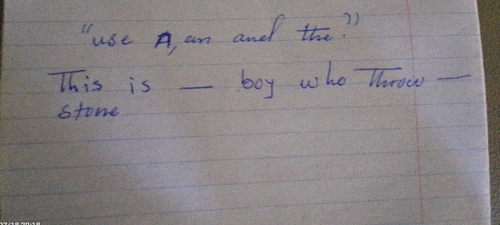 "use A, an and the?"
This is — boy who Throw —
stone